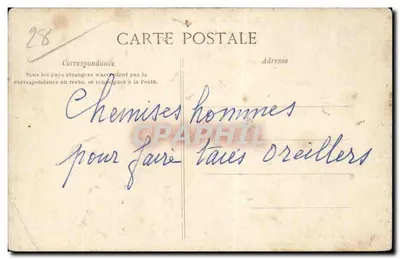 28
CARTE POSTALE
Correspondance
Adresse
Tous les pays étrangers n'acceptent pas la
correspondance au recto, se renseigner à la Poste.
Chemises hommes
CPAPHIL
pour faire taies oreillers